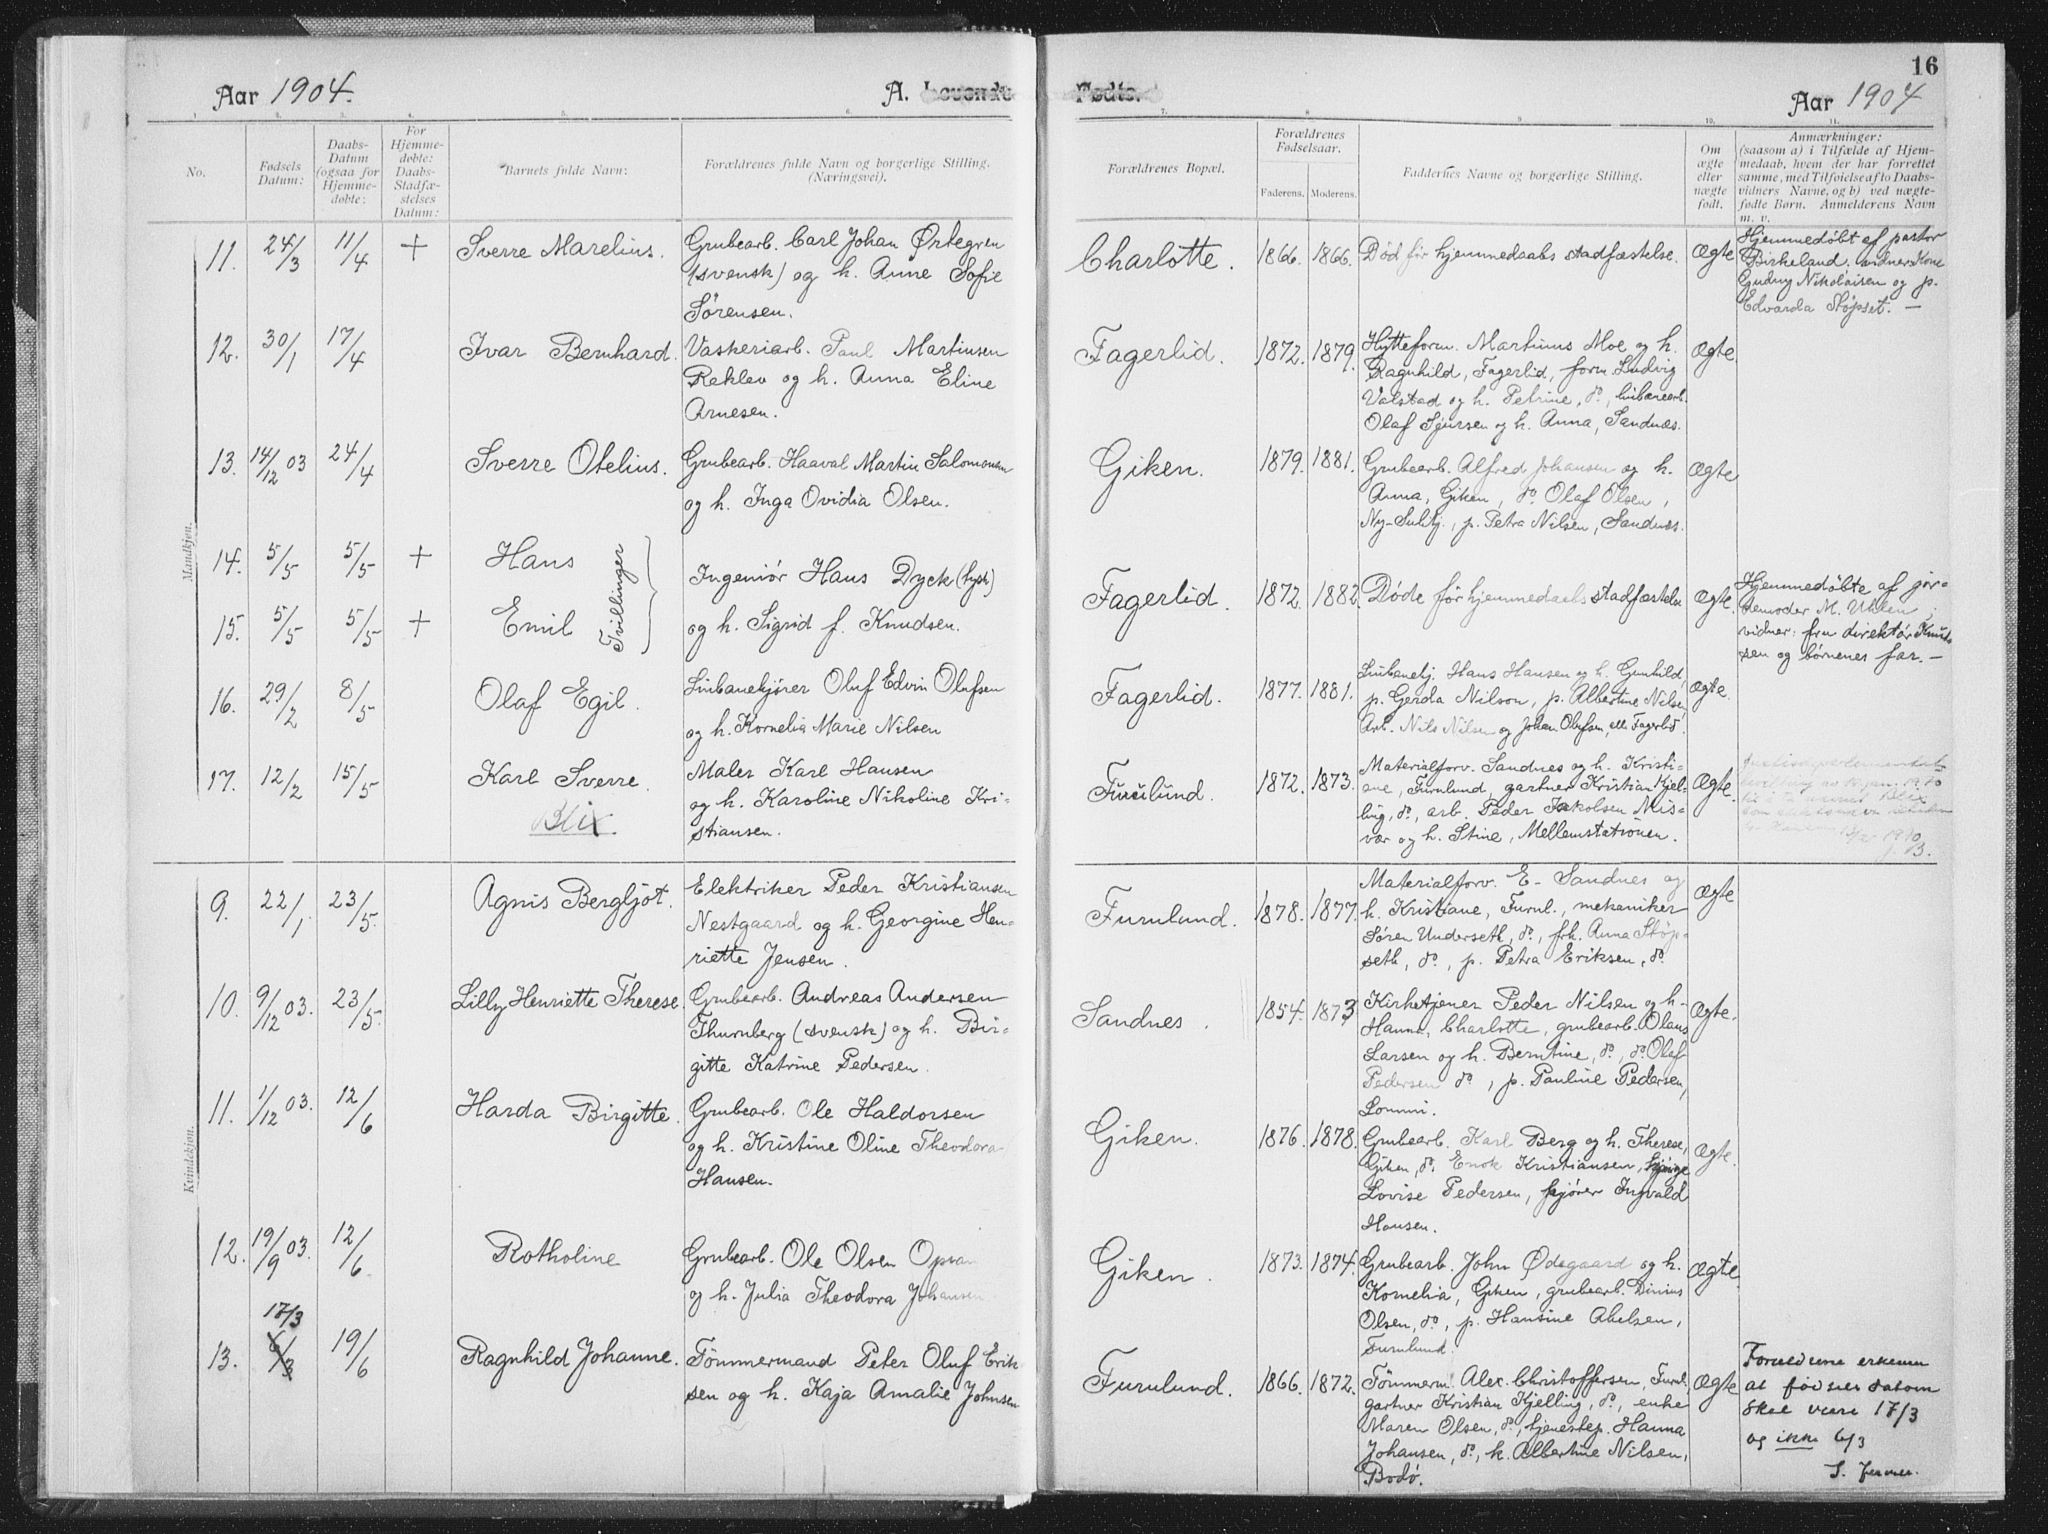 16
Aar 1904.
A. Levende
Fødte.
Aar 1904
1. 2. 3. 4. 5. 6. 7. 8. 9. 10. 11.
No.
Fødsels Datum:
Daabs-Datum (ogsaa for Hjemmedøbte:
For Hjemmedøbte: Daabs-Stadfæstelses Datum:
Barnets fulde Navn:
Forældrenes fulde Navn og borgerlige Stilling. (Næringsvei).
Forældrenes Bopæl.
Forældrenes Fødselsaar.
Faderens. Moderens.
Faddernes Navne og borgerlige Stilling.
Om ægte eller nægte født.
Anmærkninger:
(saasom a) i Tilfælde af Hjem-
medaab, hvem der har forrettet
samme, med Tilføielse af to Daabs-
vidners Navne, og b) ved nægte-
fødte Børn. Anmelderens Navn
m. v.
Mandkjøn.
11. 24/3 11/4 + Sverre Marelius.
Grubearb. Carl Johan Örtegren
(svensk) og h. Anne Sofie
Sörensen.
Charlotte. 1866. 1866. Død før hjemmedaabs stadfæstelse. Ægte
Hjemmedøbt af pastor
Birkeland. vidner: Kone
Gudny Nikolaisen og p.
Edvarda Støpset. —
12. 30/1 17/4 Ivar Bernhard.
Vaskeriarb. Paul Martinsen
Reklev og h. Anna Eline
Arnesen.
Fagerlid. 1872. 1879.
Hytteform. Martinus Moe og h.
Ragnhild, Fagerlid, form Ludvig
Valstad og h. Petrine, do., linbanearb.
Olaf Sjursen og h. Anna, Sandnæs.
Ægte
13. 14/12 03 24/4 Sverre Otelius.
Grubearb. Haaval Martin Salomonsen
og h. Inga Ovidia Olsen.
Giken. 1879. 1881.
Grubearb. Alfred Johansen og h.
Anna, Giken, do. Olaf Olsen,
Ny-Sulitj., p. Petra Nilsen, Sandnæs.
Ægte
14. 5/5 5/5 + Hans
15. 5/5 5/5 + Emil
Tvillinger
Ingeniör Hans Dyck (tysk)
og h. Sigrid f. Knudsen.
Fagerlid. 1872. 1882. Døde før hjemmedaabs stadfæstelse Ægte.
Hjemmedöbte af jor-
demoder M. Uhlen;
vidner: fru direktör Knud-
sen og børnenes far. —
16. 29/2 8/5 Olaf Egil.
Linbanekjører Oluf Edvin Olufsen
og h. Kornelia Marie Nilsen
Fagerlid. 1877. 1881.
Linbanekj. Hans Hansen og h. Gunhild,
p. Gerda Nilson, p. Albertine Nilsen
Arb. Nils Nilsen og Johan Olufsen, alle Fagerlid.
Ægte.
17. 12/2 15/5 Karl Sverre.
Blix.
Maler Karl Hansen
og h. Karoline Nikoline Kri-
stiansen.
Furulund. 1872. 1873.
Materialforv. Sandnes og h. Kristi-
ane, Furulund, gartner Kristian Kjel-
ling, do., arb. Peder Jakobsen Mis-
vær og h. Stine, Mellemstationen.
Ægte.
Kvindekjøn.
9. 22/1 23/5. Agnis Bergljót.
Elektriker Peder Kristiansen
Nestgaard og h. Georgine Hen-
riette Jensen.
Furulund. 1878. 1877.
Materialforv. E. Sandnes og
h. Kristiane, Furul., mekaniker
Sören Underseth, do., frk. Anna Støp-
seth, do., p. Petra Eriksen, do.
Ægte
10. 9/12 03. 23/5. Lilly Henriette Therese.
Grubearb. Andreas Andersen
Thurnberg (svensk) og h. Bir-
gitte Katrine Pedersen.
Sandnes. 1854. 1873
Kirketjener Peder Nilsen og h.
Hanna, Charlotte, grubearb. Olaus
Larsen og h. Berntine, do., do. Olaf
Pedersen do., p. Pauline Pedersen,
Lommi.
Ægte.
11. 1/12 03. 12/6 Harda Birgitte.
Grubearb. Ole Haldorsen
og h. Kristine Oline Theodora
Hansen.
Giken. 1876. 1878.
Grubearb. Karl Berg og h. Therese,
Giken, do. Enok Kristiansen,
Lovise Pedersen, kjører Ingvald
Hansen.
Ægte.
12. 19/9 03. 12/6. Rotholine
Grubearb. Ole Olsen
og h. Julia Theodora Johansen
Giken. 1873. 1874.
Grubearb. John Ödegaard og h.
Kornelia, Giken, grubearb. Dinius
Olsen, do., p. Hansine Abelsen,
Furulund.
Ægte.
17/3
13. 6/3 19/6 Ragnhild Johanne.
Tömmermand Peter Oluf Erik-
sen og h. Kaja Amalie Johnsen
Furulund. 1866. 1872.
Tömmerm. Alex. Christoffersen, Furul.
gartner Kristian Kjelling, do., enke
Maren Olsen, do., tjenestep. Hanna
Johansen, do., k. Albertine Nilsen,
Bodö.
Ægte
Foreldrene erkenner
at fødselsdatoen
skal være 17/3
og ikke 6/3